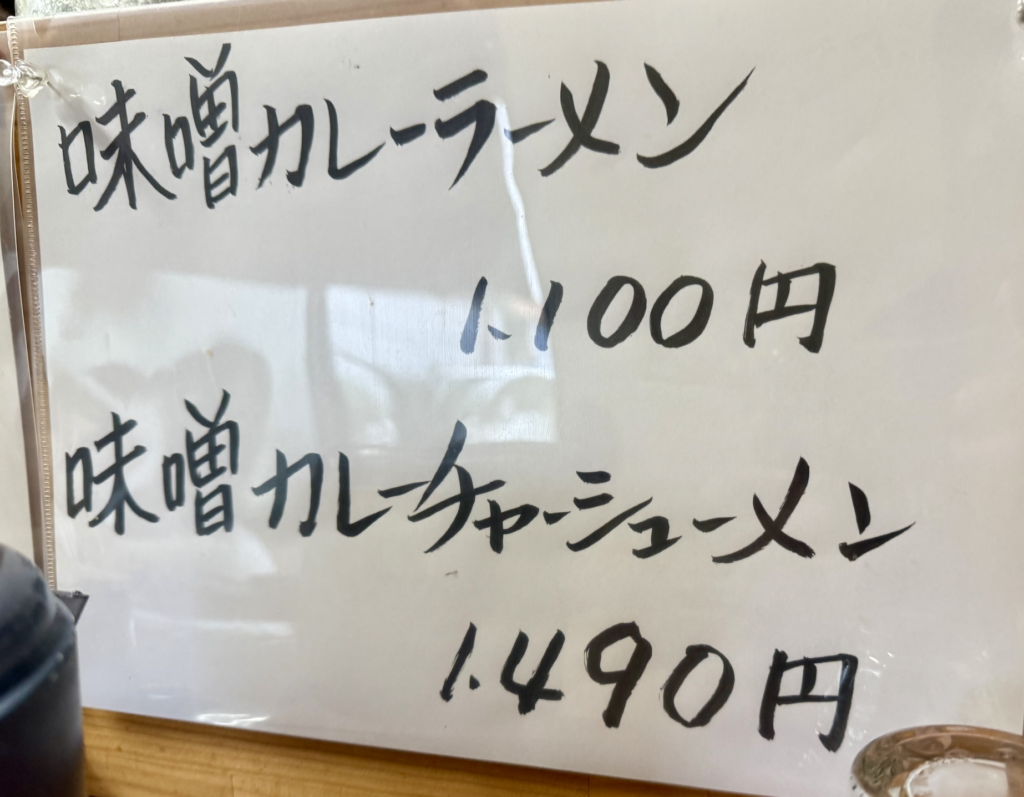 味噌カレーラーメン
1.100円
味噌カレーチャーシューメン
1.490円